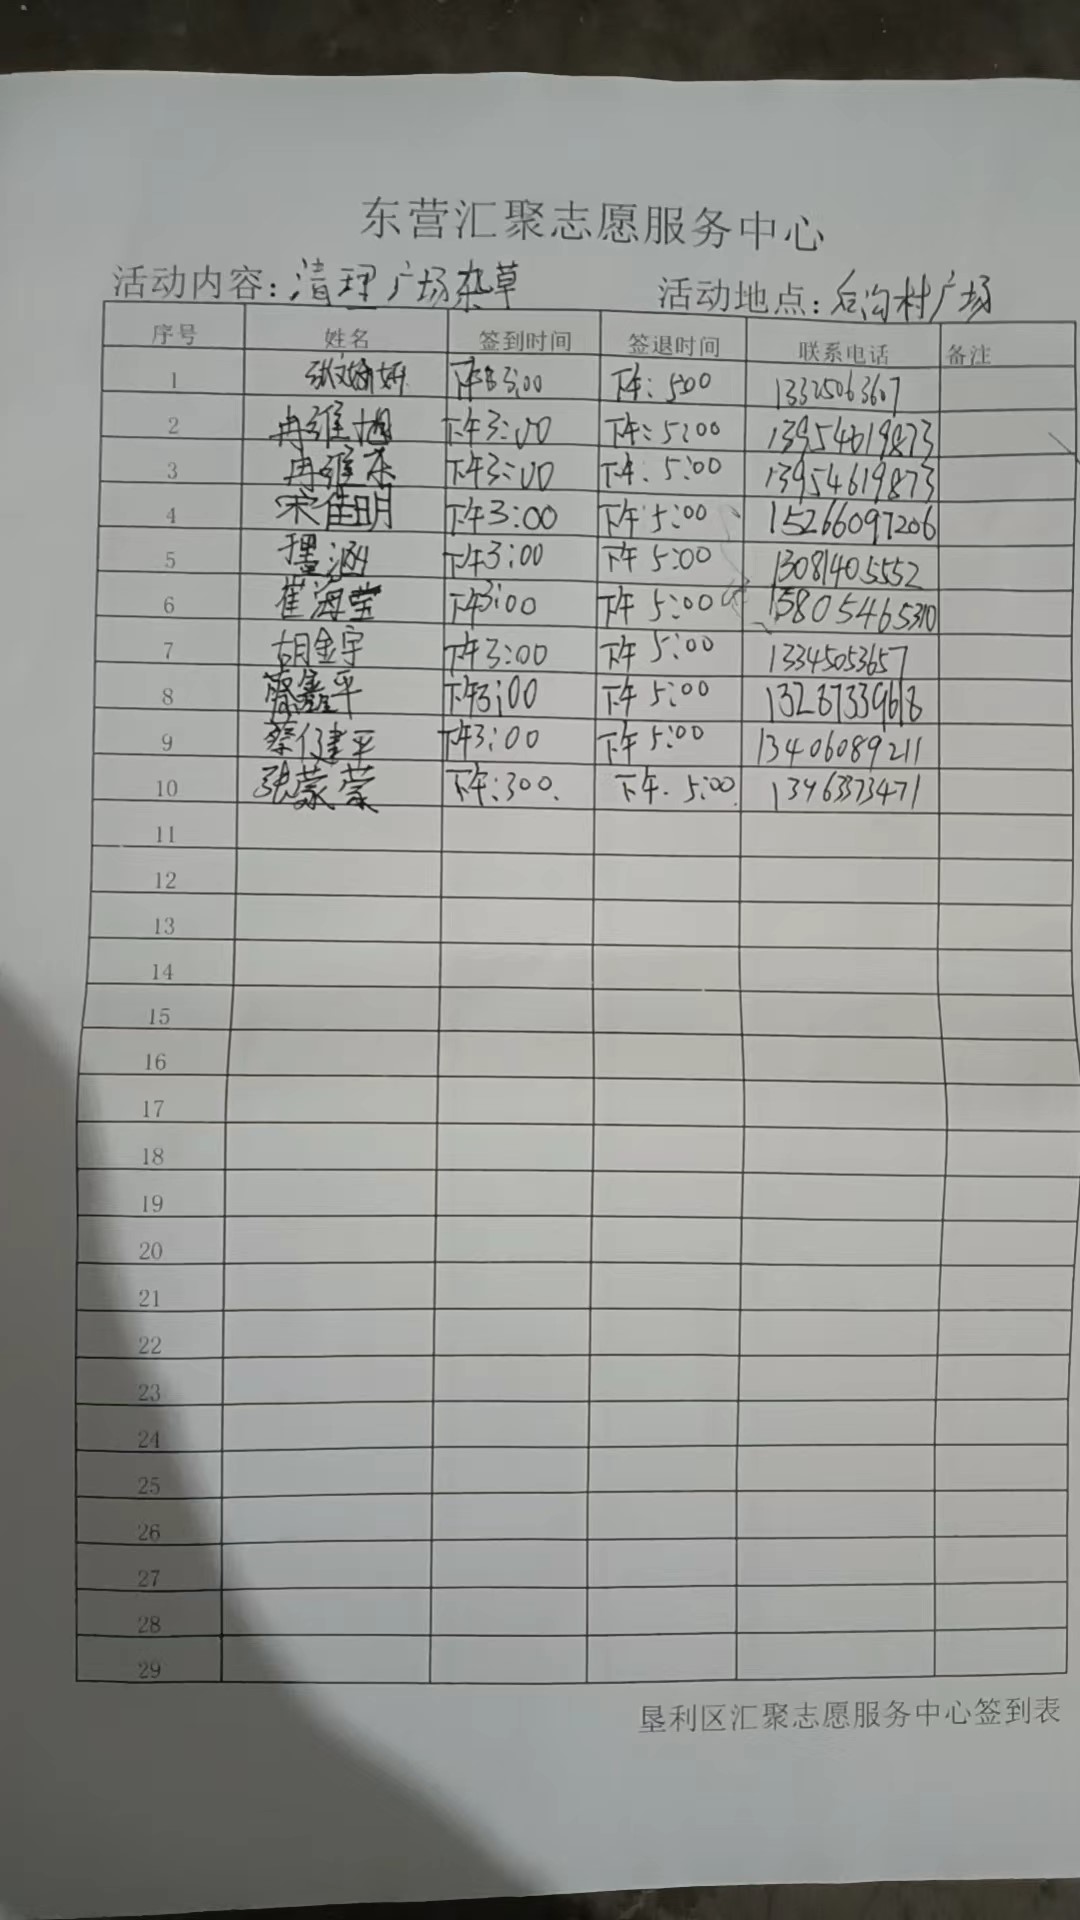 东营汇聚志愿服务中心
活动内容：清理广场杂草 活动地点：后沟村广场
序号 姓名 签到时间 签退时间 联系电话 备注
1 下午3:00 下午：500 13325063607
2 冉维旭 下午3:00 下午：5:00 13954619873
3 冉维东 下午3:00 下午：5:00 13954619873
4 宋佳明 下午3:00 下午5:00 15266097206
5 下午3:00 下午5:00 13081405552
6 崔海莹 下午3:00 下午5:00 15805465310
7 胡金宇 下午3:00 下午5:00 13345053657
8 下午3:00 下午5:00 13287339618
9 蔡健平 下午3:00 下午5:00 13406089211
10 张蒙蒙 下午:300. 下午.5:00. 13963373471
11
12
13
14
15
16
17
18
19
20
21
22
23
24
25
26
27
28
29
垦利区汇聚志愿服务中心签到表